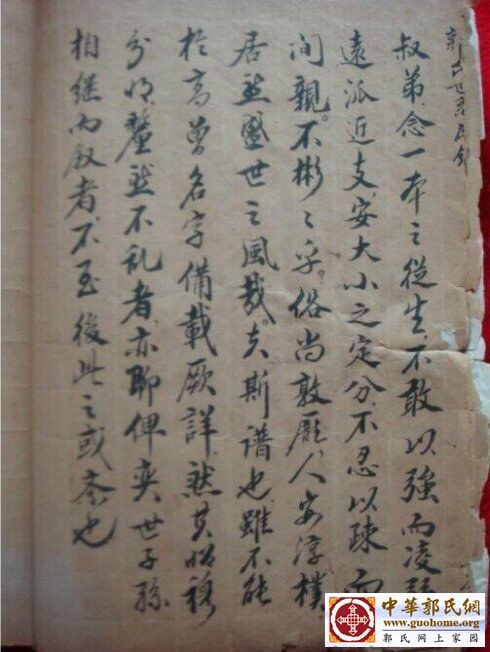 郭氏世
叔弟、念一本之從生、不敢以強而凌弱
遠派近支、安大小之定分、不忍以疎而
间親。不彬〻乎。俗尚敦厖、人安淳樸、
居然盛世之風哉。夫斯谱也、雖不能
於高曾名字備載厥詳、然其昭穆
分明、釐然不乱者、亦聊俾奕世子孫
相继而叙者、不至後此之或紊也
中華郭氏網
www.guohome.org
郭氏网上家园